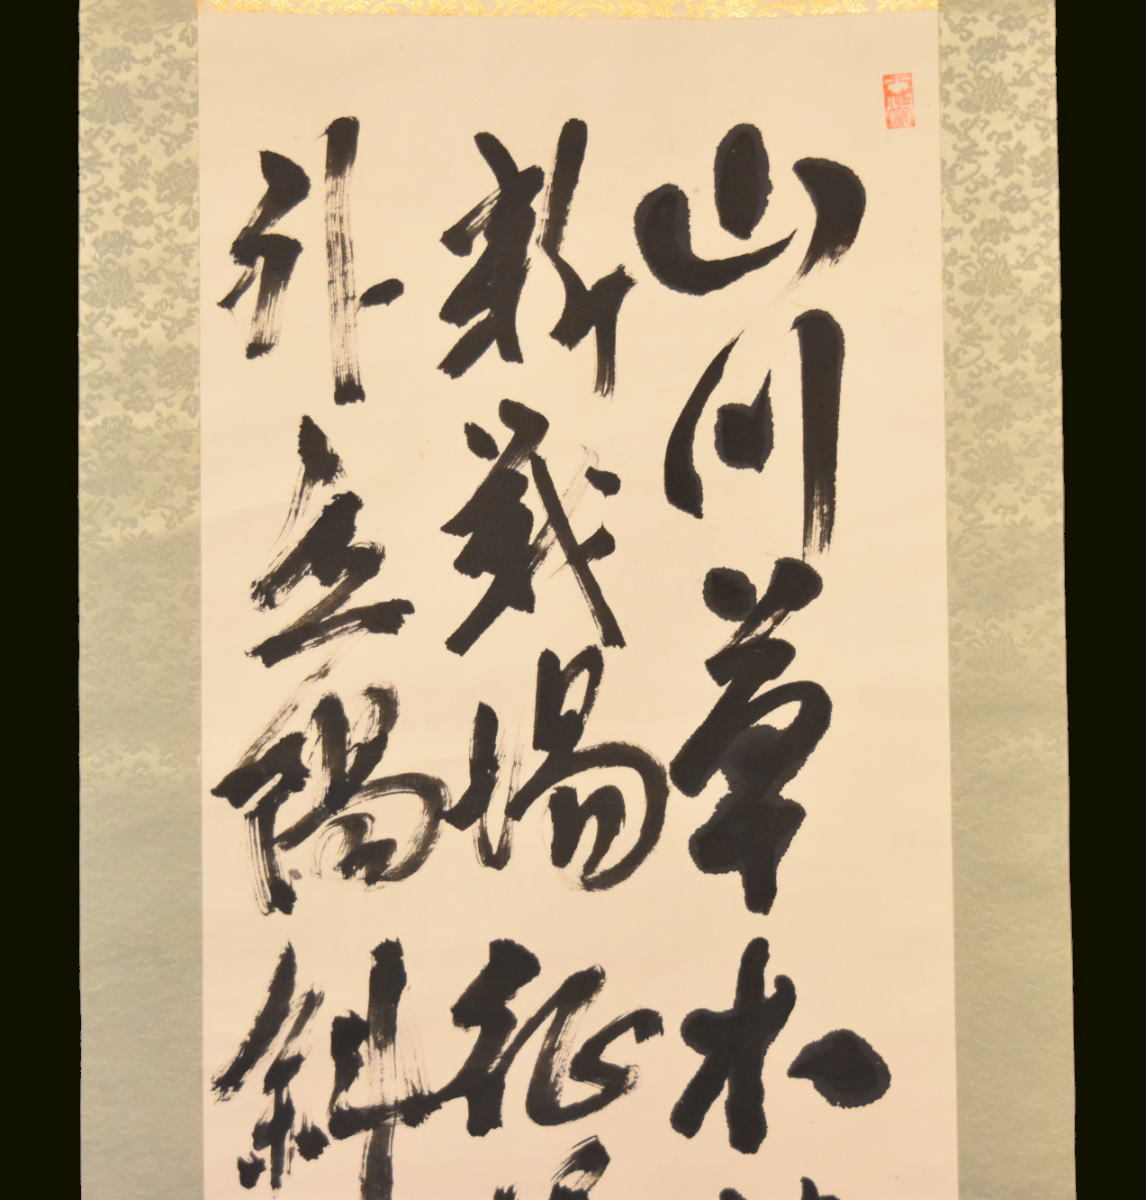 山川草木
新戦場征
外立陽斜